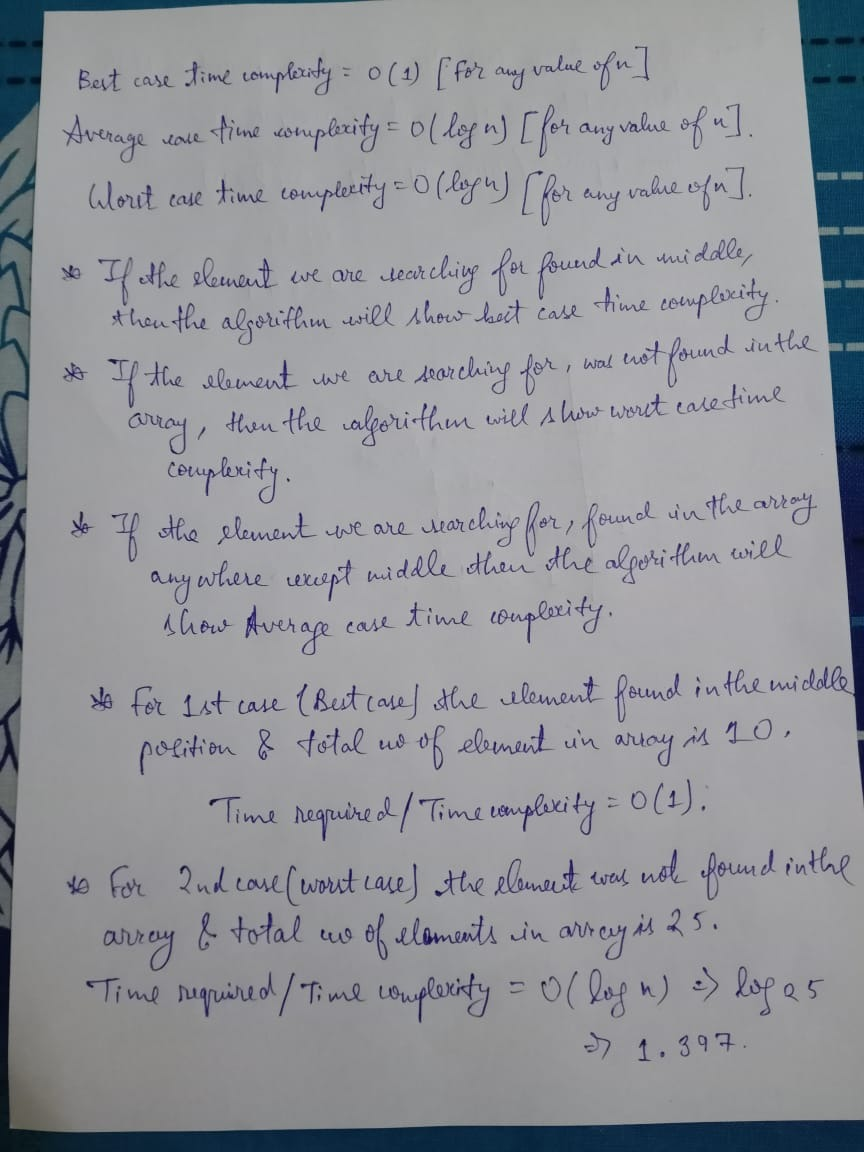 Best case time complexity = O(1) [for any value of n]
Average case time complexity = O(log n) [for any value of n].
Worst case time complexity = O(log n) [for any value of n].
* If the element we are searching for found in middle,
then the algorithm will show best case time complexity.
* If the element we are searching for, was not found in the
array, then the algorithm will show worst case time
complexity.
* If the element we are searching for, found in the array
anywhere except middle then the algorithm will
show Average case time complexity.
* For 1st case (Best case) the element found in the middle
position & total no of element in array is 10.
Time required/Time complexity = O(1).
* For 2nd case (worst case) the element was not found in the
array & total no of elements in array is 25.
Time required/Time complexity = O(log n) => log 25
=> 1.397.